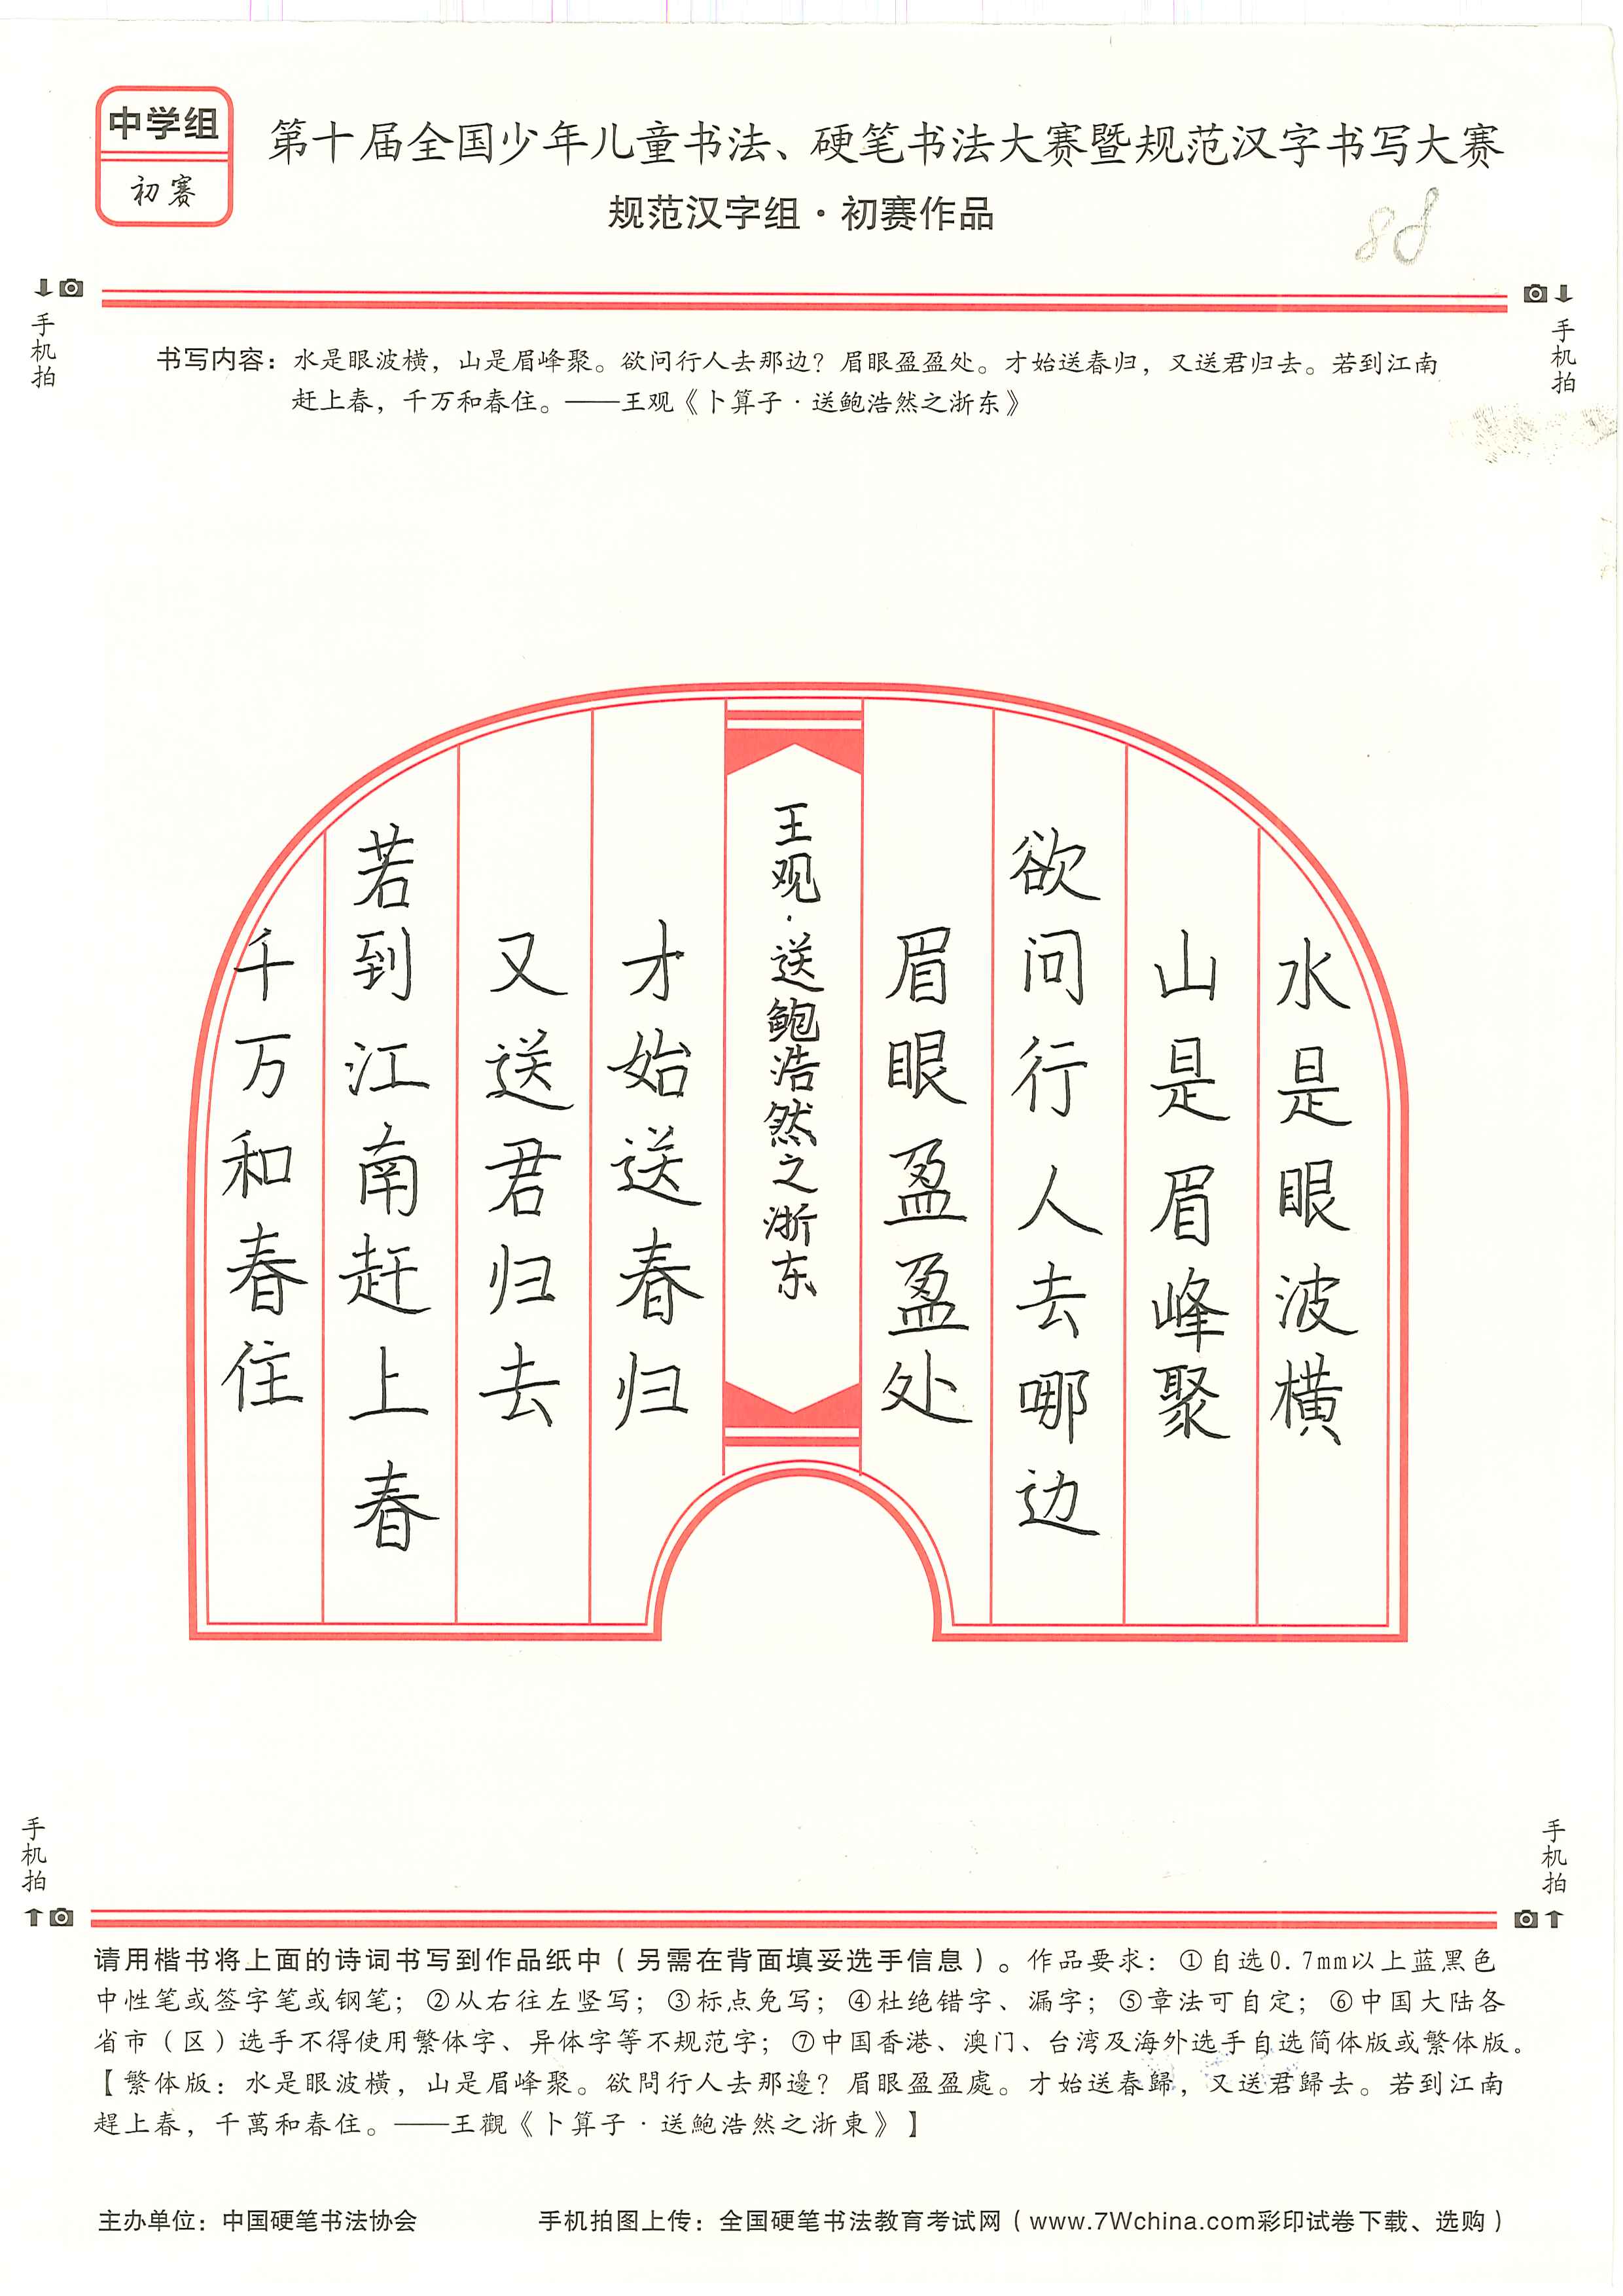 中学组
初赛
第十届全国少年儿童书法、硬笔书法大赛暨规范汉字书写大赛
规范汉字组·初赛作品
88
手机拍
手机拍
书写内容：水是眼波横，山是眉峰聚。欲问行人去那边？眉眼盈盈处。才始送春归，又送君归去。若到江南
赶上春，千万和春住。——王观《卜算子·送鲍浩然之浙东》
水是眼波横
山是眉峰聚
欲问行人去哪边
眉眼盈盈处
王观·送鲍浩然之浙东
才始送春归
又送君归去
若到江南赶上春
千万和春住
手机拍
手机拍
请用楷书将上面的诗词书写到作品纸中（另需在背面填妥选手信息）。作品要求：①自选0.7mm以上蓝黑色
中性笔或签字笔或钢笔；②从右往左竖写；③标点免写；④杜绝错字、漏字；⑤章法可自定；⑥中国大陆各
省市（区）选手不得使用繁体字、异体字等不规范字；⑦中国香港、澳门、台湾及海外选手自选简体版或繁体版。
【繁体版：水是眼波橫，山是眉峰聚。欲問行人去那邊？眉眼盈盈處。才始送春歸，又送君歸去。若到江南
趕上春，千萬和春住。——王觀《卜算子·送鮑浩然之浙東》】
主办单位：中国硬笔书法协会
手机拍图上传：全国硬笔书法教育考试网（www.7Wchina.com彩印试卷下载、选购）